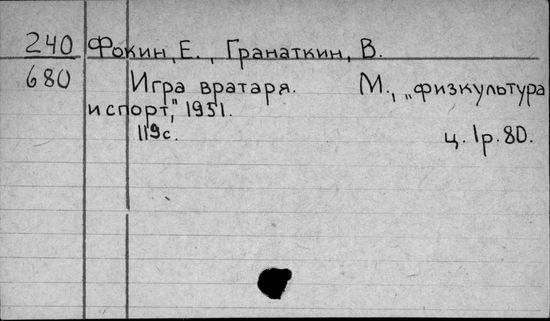 240 Фокин, Е., Гранаткин, В.
680 Игра вратаря. М., „физкультура
и спорт," 1951.
119с. ц. 1р. 80.